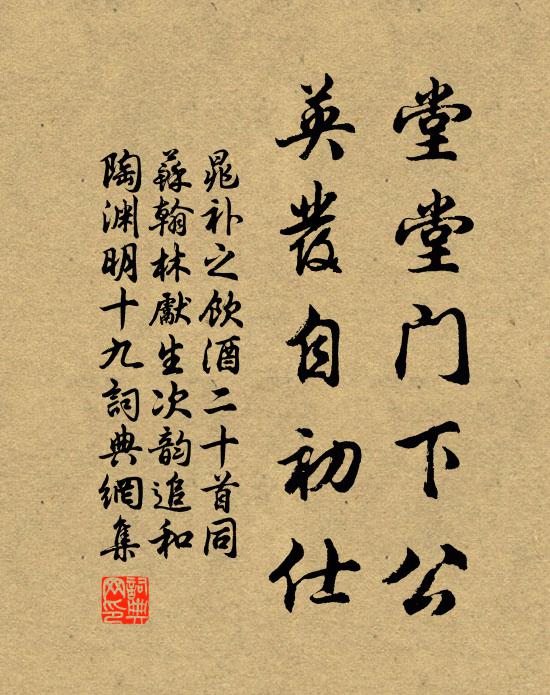 堂堂门下公
英发自初仕
晁补之饮酒二十首同
蘇翰林獻生次韵追和
陶渊明十九詞典網集